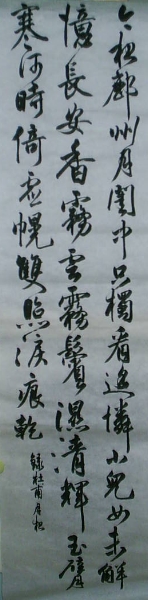 今夜鄜州月閨中只獨看遙憐小兒女未解
憶長安香霧雲霧鬟濕清輝玉臂
寒何時倚虛幌雙照淚痕乾 錄杜甫月夜